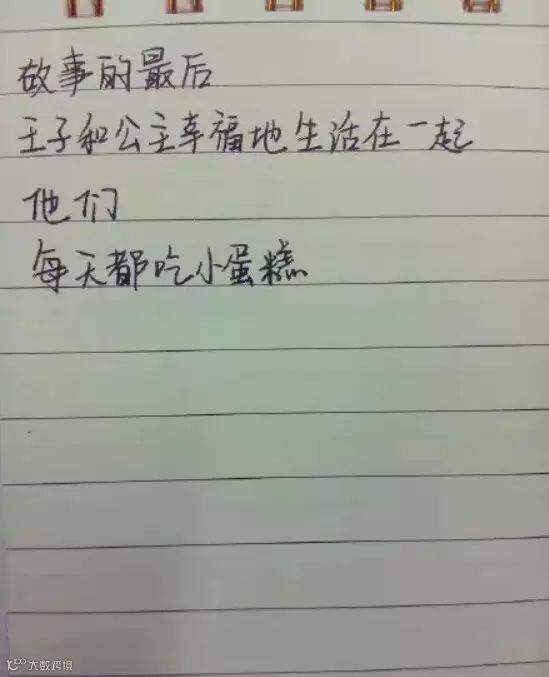 故事的最后
王子和公主幸福地生活在一起
他们
每天都吃小蛋糕
大数跨境